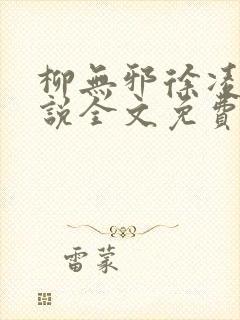 柳無邪徐凌
說全文免費
雷蒙